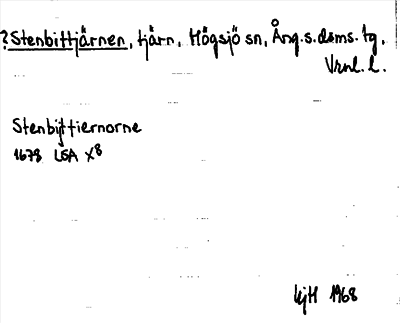 ?Stenbittjärnen, tjärn, Högsjö sn, Ång.s.dems. tg,
Vrnl. l.
Stenbijttiernorne
1678 LSA X8
KjH 1968